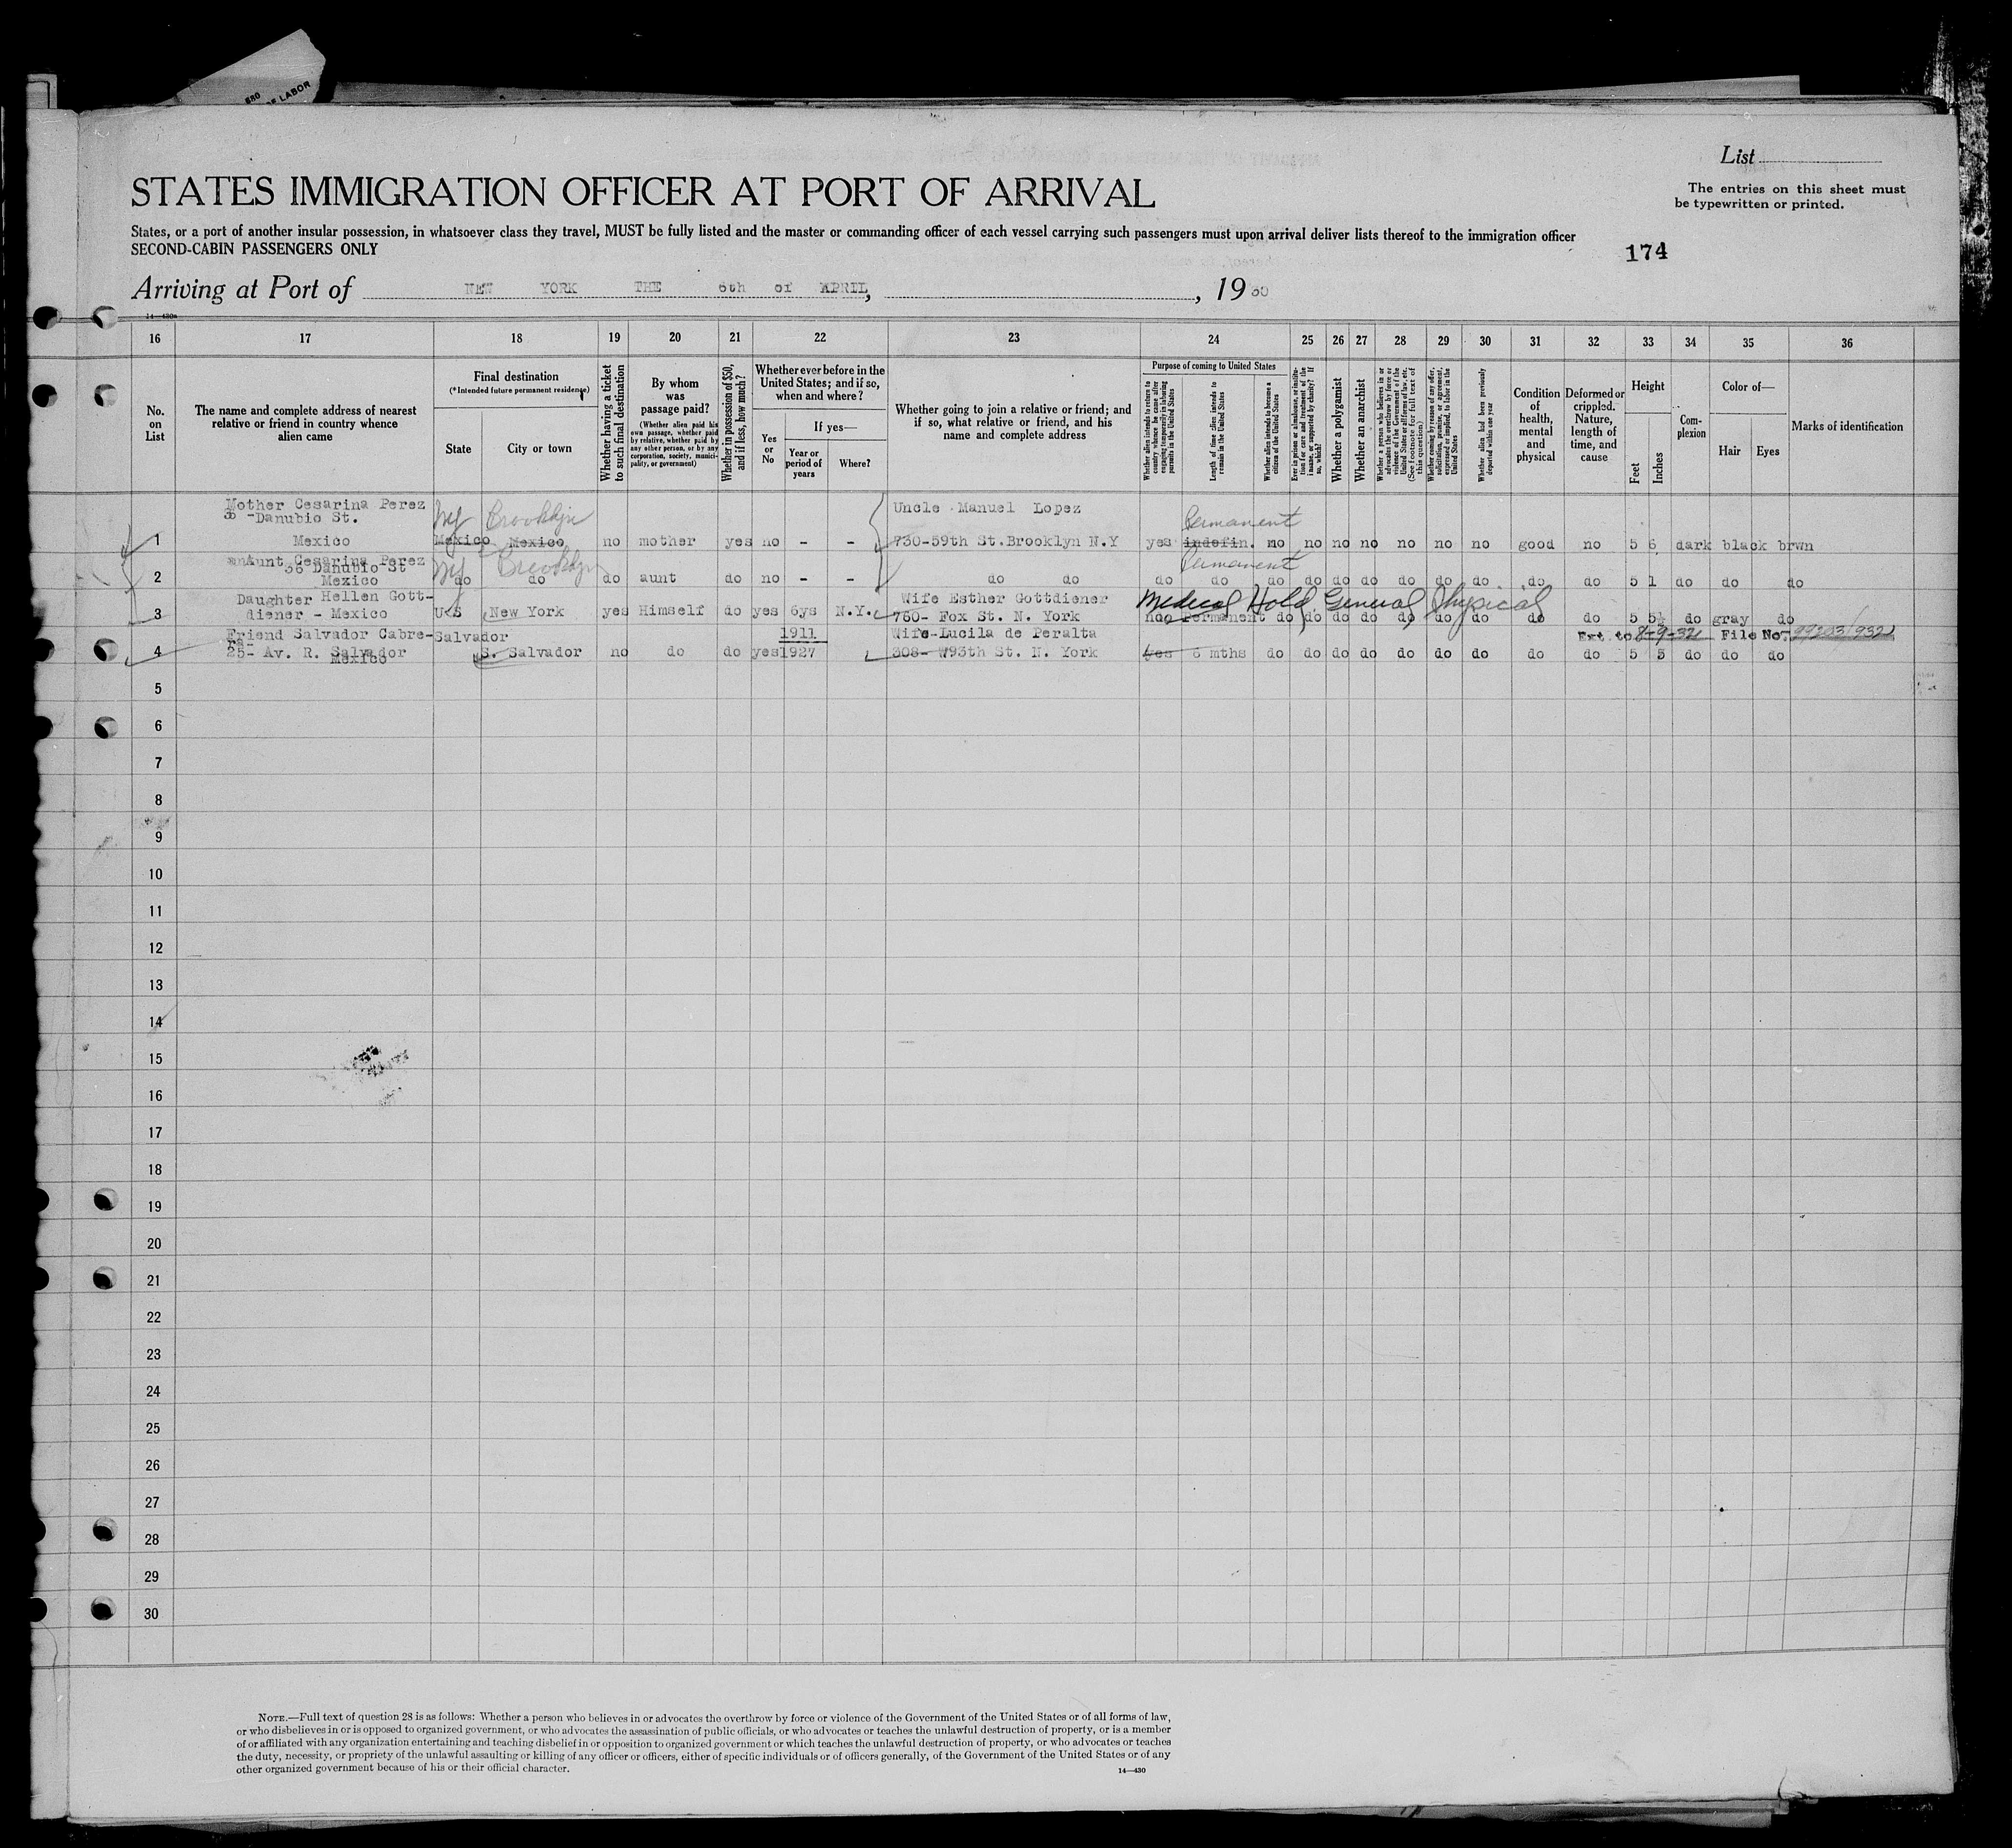 680
OF LABOR
List
STATES IMMIGRATION OFFICER AT PORT OF ARRIVAL
The entries on this sheet must
be typewritten or printed.
States, or a port of another insular possession, in whatsoever class they travel, MUST be fully listed and the master or commanding officer of each vessel carrying such passengers must upon arrival deliver lists thereof to the immigration officer
SECOND-CABIN PASSENGERS ONLY
174
Arriving at Port of NEW YORK THE 6th of APRIL, , 1930
14-430a
16 17 18 19 20 21 22 23 24 25 26 27 28 29 30 31 32 33 34 35 36
No. on List
The name and complete address of nearest relative or friend in country whence alien came
Final destination
(*Intended future permanent residence)
State
City or town
Whether having a ticket to such final destination
By whom was passage paid?
(Whether alien paid his own passage, whether paid by relative, whether paid by any other person, or by any corporation, society, municipality, or government)
Whether in possession of $50, and if less, how much?
Whether ever before in the United States; and if so, when and where?
Yes or No
If yes—
Year or period of years
Where?
Whether going to join a relative or friend; and if so, what relative or friend, and his name and complete address
Purpose of coming to United States
Whether alien intends to return to country whence he came after engaging temporarily in laboring pursuits in the United States
Length of time alien intends to remain in the United States
Whether alien intends to become a citizen of the United States
Ever in prison or almshouse, or institution for care and treatment of the insane, or supported by charity? If so, which?
Whether a polygamist
Whether an anarchist
Whether a person who believes in or advocates the overthrow by force or violence of the Government of the United States or all forms of law, etc. (See footnote for full text of this question)
Whether coming by reason of any offer, solicitation, promise, or agreement, expressed or implied, to labor in the United States
Whether alien had been previously deported within one year
Condition of health, mental and physical
Deformed or crippled. Nature, length of time, and cause
Height
Feet
Inches
Complexion
Color of—
Hair
Eyes
Marks of identification
Mother Cesarina Perez
36 -Danubio St. NY Brooklyn Uncle Manuel Lopez Permanent
1 Mexico Mexico Mexico no mother yes no - - 730-59th St.Brooklyn N.Y yes indefin. no no no no no no no good no 5 6 dark black brwn
Aunt Cesarina Perez
36 Danubio St NY Brooklyn Permanent
2 Mexico do do do aunt do no - - do do do do do do do do do do do do do 5 1 do do do
Daughter Hellen Gott- Wife Esther Gottdiener Medical Hold General Physical
3 diener - Mexico U.S New York yes Himself do yes 6ys N.Y. 760- Fox St. N. York Permanent do do do do do do do do do 5 5½ do gray do
Friend Salvador Cabre- Salvador 1911 Wife Lucila de Peralta Ext. to 8-9-32 File No. 99203/932
4 25- Av. R. Salvador S. Salvador no do do yes 1927 308- W93th St. N. York yes 6 mths do do do do do do do do do 5 3 do do do
Mexico
5
6
7
8
9
10
11
12
13
14
15
16
17
18
19
20
21
22
23
24
25
26
27
28
29
30
NOTE.—Full text of question 28 is as follows: Whether a person who believes in or advocates the overthrow by force or violence of the Government of the United States or of all forms of law,
or who disbelieves in or is opposed to organized government, or who advocates the assassination of public officials, or who advocates or teaches the unlawful destruction of property, or is a member
of or affiliated with any organization entertaining and teaching disbelief in or opposition to organized government or which teaches the unlawful destruction of property, or who advocates or teaches
the duty, necessity, or propriety of the unlawful assaulting or killing of any officer or officers, either of specific individuals or of officers generally, of the Government of the United States or of any
other organized government because of his or their official character.
14—430